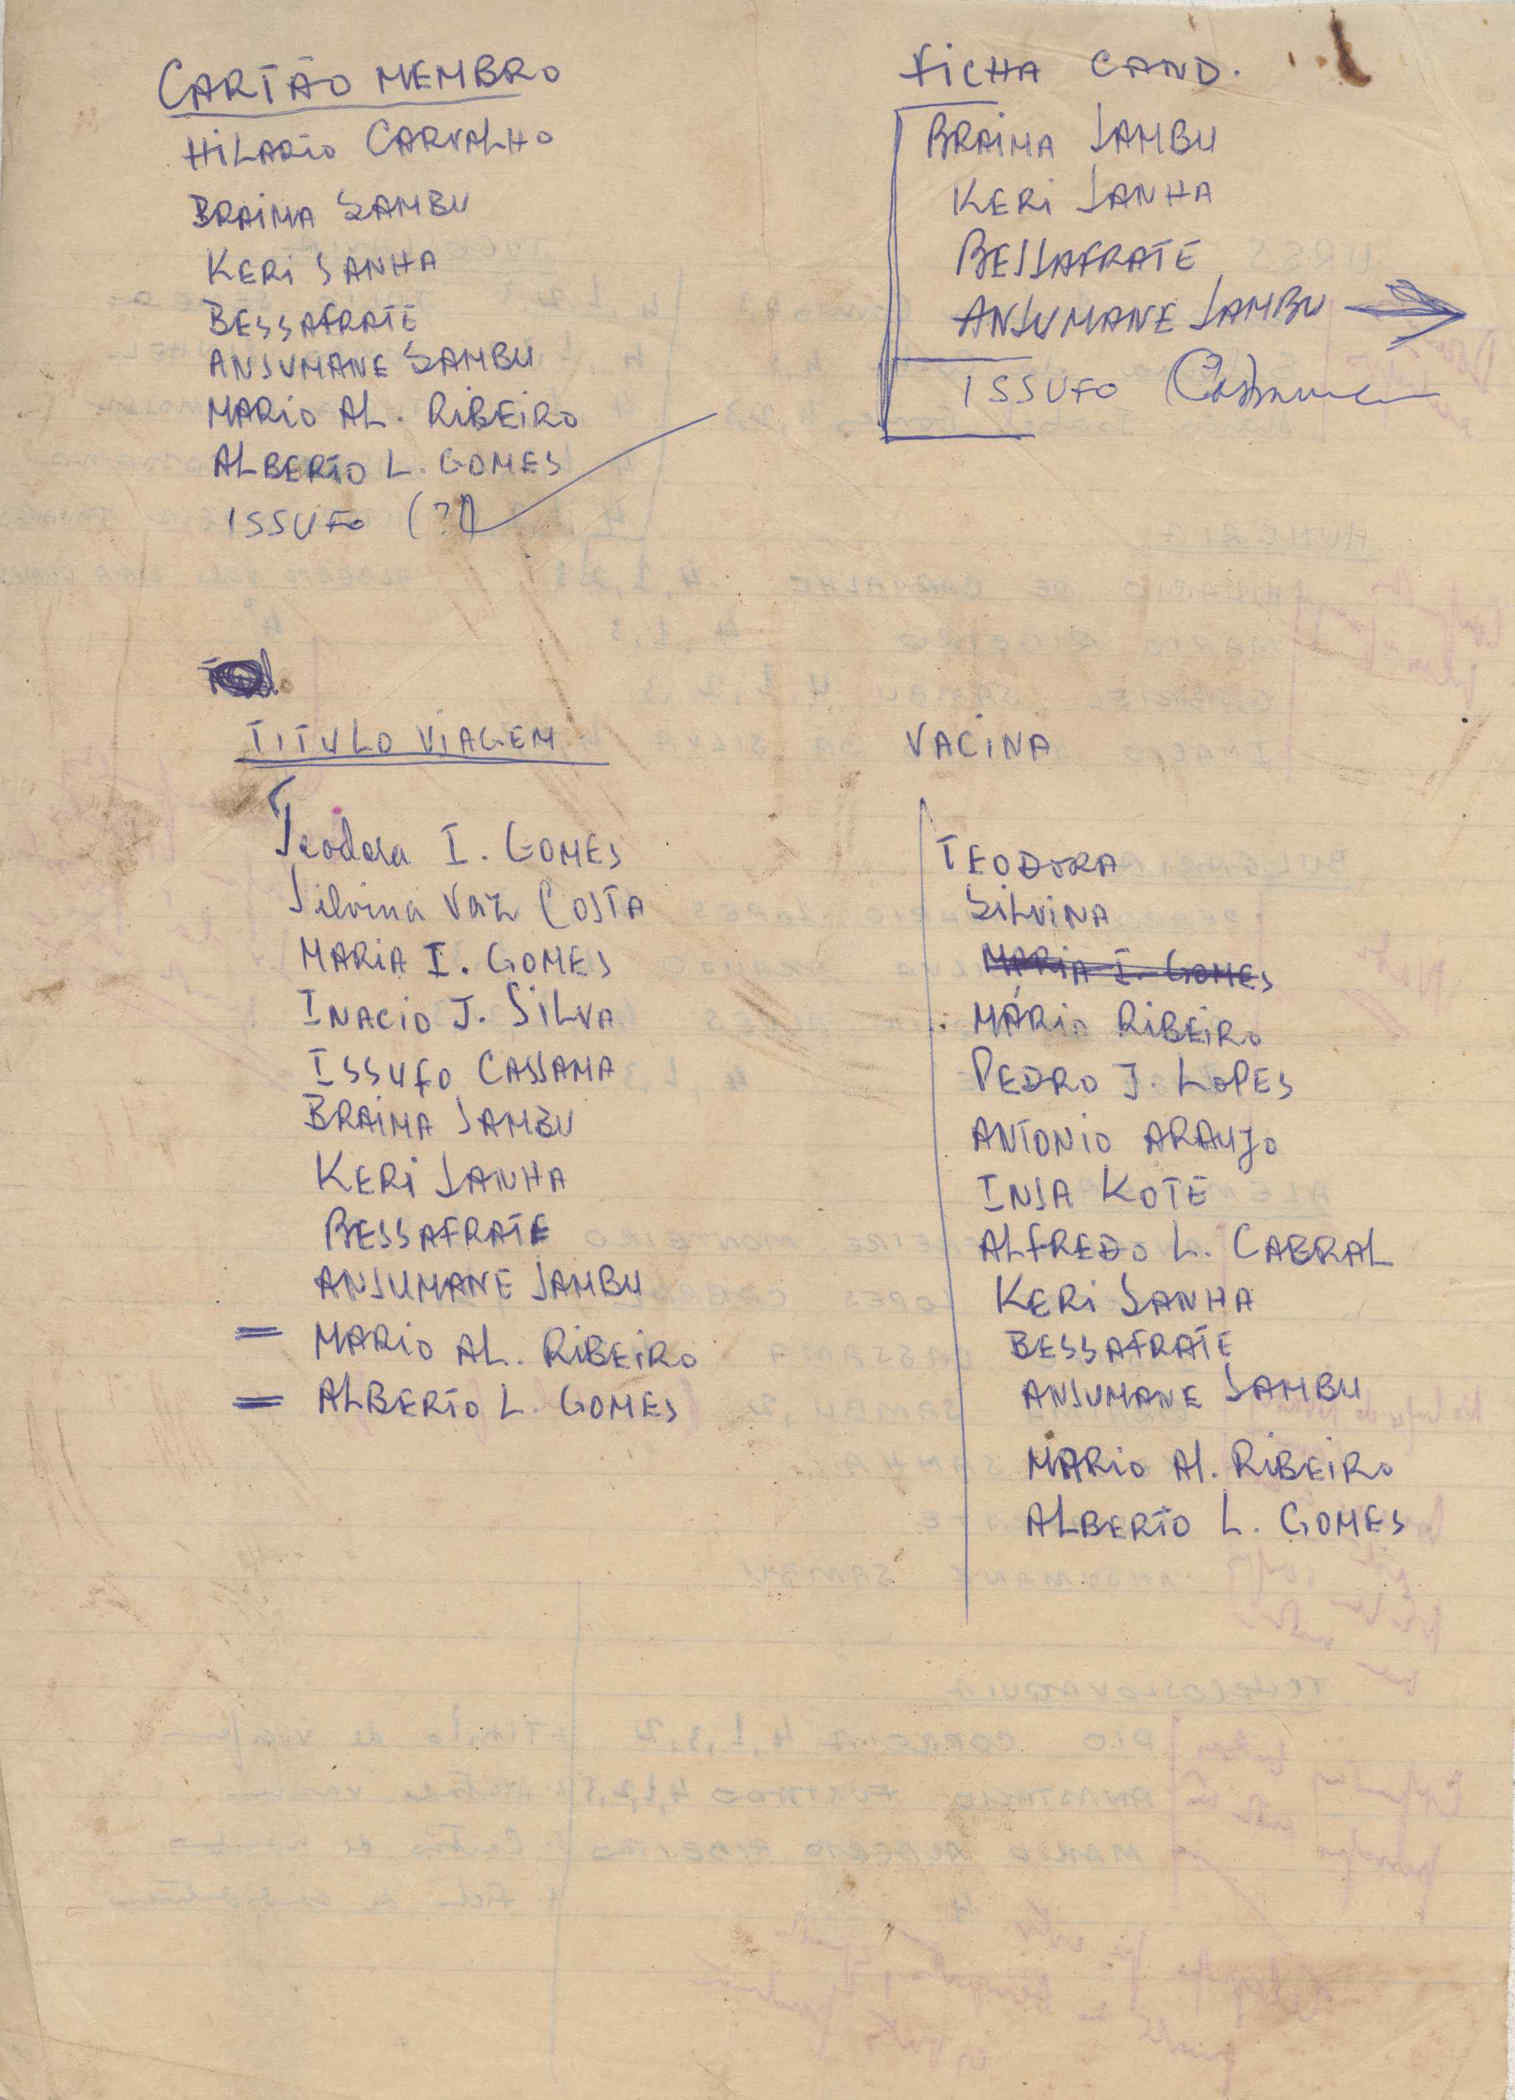 CARTÃO MEMBRO
HILARIO CARVALHO
BRAIMA SAMBU
KERI SANHA
BESSAFRATE
ANSUMANE SAMBU
MARIO AL. RIBEIRO
ALBERTO L. GOMES
ISSUFO (?)
FICHA CAND.
BRAIMA SAMBU
KERI SANHA
BESSAFRATE
ANSUMANE SAMBU
ISSUFO
TITULO VIAGEM
Teodora I. GOMES
Silvina Vaz COSTA
MARIA I. GOMES
INACIO J. SILVA
ISSUFO CASSAMA
BRAIMA SAMBU
KERI SANHA
BESSAFRATE
ANSUMANE SAMBU
= MARIO AL. RIBEIRO
= ALBERTO L. GOMES
VACINA
TEODORA
SILVINA
MARIA I. GOMES
MÁRIO RIBEIRO
PEDRO J. LOPES
ANTONIO ARAUJO
INSA KOTE
ALFREDO L. CABRAL
KERI SANHA
BESSAFRATE
ANSUMANE SAMBU
MARIO Al. RIBEIRO
ALBERTO L. GOMES